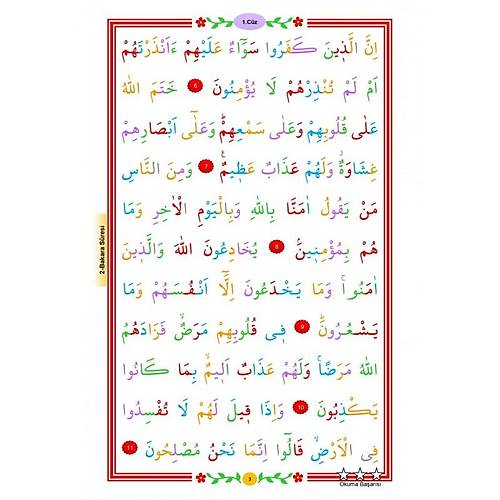 1.Cüz
اِنَّ الَّذٖينَ كَفَرُوا سَوَٓاءٌ عَلَيْهِمْ ءَاَنْذَرْتَهُمْ
اَمْ لَمْ تُنْذِرْهُمْ لَا يُؤْمِنُونَ 6 خَتَمَ اللّٰهُ
عَلٰى قُلُوبِهِمْ وَعَلٰى سَمْعِهِمْؕ وَعَلٰٓى اَبْصَارِهِمْ
غِشَاوَةٌؗ وَلَهُمْ عَذَابٌ عَظٖيمٌࣖ 7 وَمِنَ النَّاسِ
مَنْ يَقُولُ اٰمَنَّا بِاللّٰهِ وَبِالْيَوْمِ الْاٰخِرِ وَمَا
هُمْ بِمُؤْمِنٖينَۘ 8 يُخَادِعُونَ اللّٰهَ وَالَّذٖينَ
اٰمَنُواۚ وَمَا يَخْدَعُونَ اِلَّٓا اَنْفُسَهُمْ وَمَا
يَشْعُرُونَؕ 9 فٖى قُلُوبِهِمْ مَرَضٌۙ فَزَادَهُمُ
اللّٰهُ مَرَضًاۚ وَلَهُمْ عَذَابٌ اَلٖيمٌۙ بِمَا كَانُوا
يَكْذِبُونَ 10 وَاِذَا قٖيلَ لَهُمْ لَا تُفْسِدُوا
فِى الْاَرْضِۙ قَالُٓوا اِنَّمَا نَحْنُ مُصْلِحُونَ 11
2-Bakara Sûresi
3
Okuma Başarısı